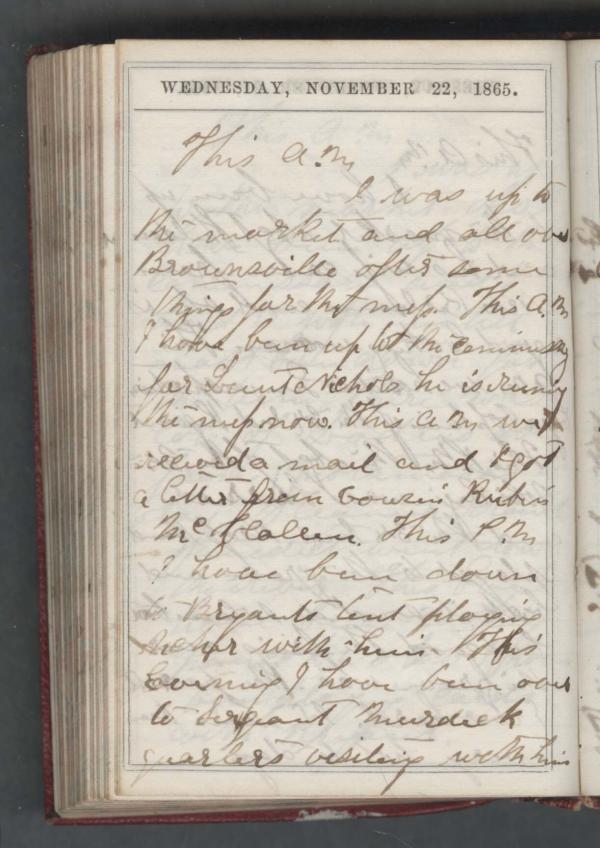 WEDNESDAY, NOVEMBER 22, 1865.
This A.M
I was up to
the market and all over
Brownsville after some
things for the mess. This A.M
I have been up to the Commissary
for Lieut Nichols he is runing
the mess now. This A M we
received a mail and I got
a letter from Cousin Rubin
Mc Callen. This P.M
I have been down
to Bryants tent playing
with him. This
Evening I have been over
to Sergeant Murdick
quarters visiting with him